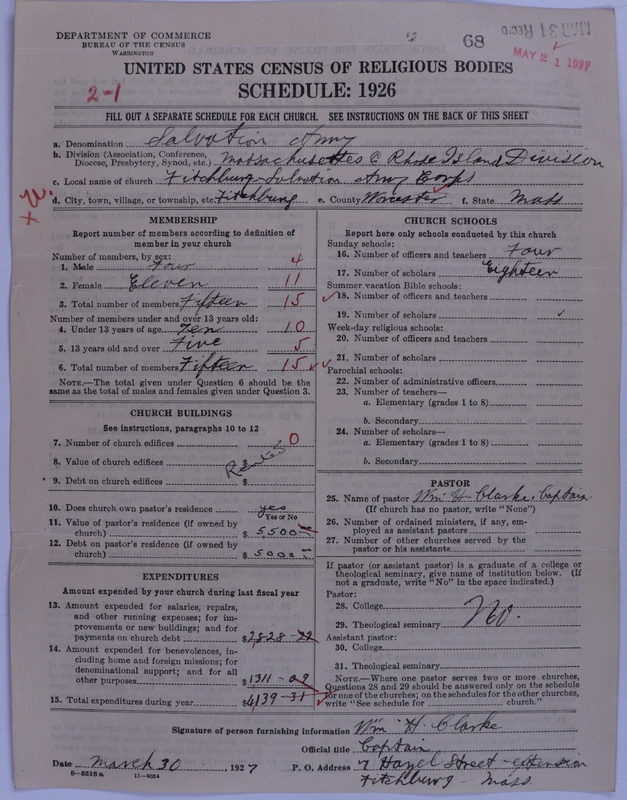 DEPARTMENT OF COMMERCE
BUREAU OF THE CENSUS
WASHINGTON
68
MAY 31 REC'D
MAY 21 1927
UNITED STATES CENSUS OF RELIGIOUS BODIES
2-1
SCHEDULE: 1926
FILL OUT A SEPARATE SCHEDULE FOR EACH CHURCH. SEE INSTRUCTIONS ON THE BACK OF THIS SHEET
a. Denomination Salvation Army
b. Division (Association, Conference, Diocese, Presbytery, Synod, etc.) Massachusettes & Rhode Island Division
c. Local name of church Fitchburg Salvation Army Corps
d. City, town, village, or township, etc. Fitchburg e. County Worcester f. State Mass
MEMBERSHIP
Report number of members according to definition of
member in your church
Number of members, by sex:
1. Male Four 4
2. Female Eleven 11
3. Total number of members Fifteen 15
Number of members under and over 13 years old:
4. Under 13 years of age Ten 10
5. 13 years old and over Five 5
6. Total number of members Fifteen 15
NOTE.—The total given under Question 6 should be the
same as the total of males and females given under Question 3.
CHURCH BUILDINGS
See instructions, paragraphs 10 to 12
7. Number of church edifices 0
8. Value of church edifices $ Rented
9. Debt on church edifices $
10. Does church own pastor's residence yes
Yes or No
11. Value of pastor's residence (if owned by
church) $ 5500
12. Debt on pastor's residence (if owned by
church) $ 5000
EXPENDITURES
Amount expended by your church during last fiscal year
13. Amount expended for salaries, repairs,
and other running expenses; for im-
provements or new buildings; and for
payments on church debt $2828-22
14. Amount expended for benevolences, in-
cluding home and foreign missions; for
denominational support; and for all
other purposes $1311-09
15. Total expenditures during year $4139-31
CHURCH SCHOOLS
Report here only schools conducted by this church
Sunday schools:
16. Number of officers and teachers Four
17. Number of scholars Eighteen
Summer vacation Bible schools:
18. Number of officers and teachers
19. Number of scholars
Week-day religious schools:
20. Number of officers and teachers
21. Number of scholars
Parochial schools:
22. Number of administrative officers
23. Number of teachers—
a. Elementary (grades 1 to 8)
b. Secondary
24. Number of scholars—
a. Elementary (grades 1 to 8)
b. Secondary
PASTOR
25. Name of pastor Wm H. Clarke, Captain
(If church has no pastor, write "None")
26. Number of ordained ministers, if any, em-
ployed as assistant pastors
27. Number of other churches served by the
pastor or his assistants
If pastor (or assistant pastor) is a graduate of a college or
theological seminary, give name of institution below. (If
not a graduate, write "No" in the space indicated.)
Pastor:
28. College
29. Theological seminary No.
Assistant pastor:
30. College
31. Theological seminary
NOTE.—Where one pastor serves two or more churches,
Questions 28 and 29 should be answered only on the schedule
for one of the churches; on the schedules for the other churches,
write "See schedule for church."
Signature of person furnishing information Wm H. Clarke
Official title Captain
Date March 30, 1927 P. O. Address 7 Hazel Street-extension
8-5518a 11-9054 Fitchburg - Mass